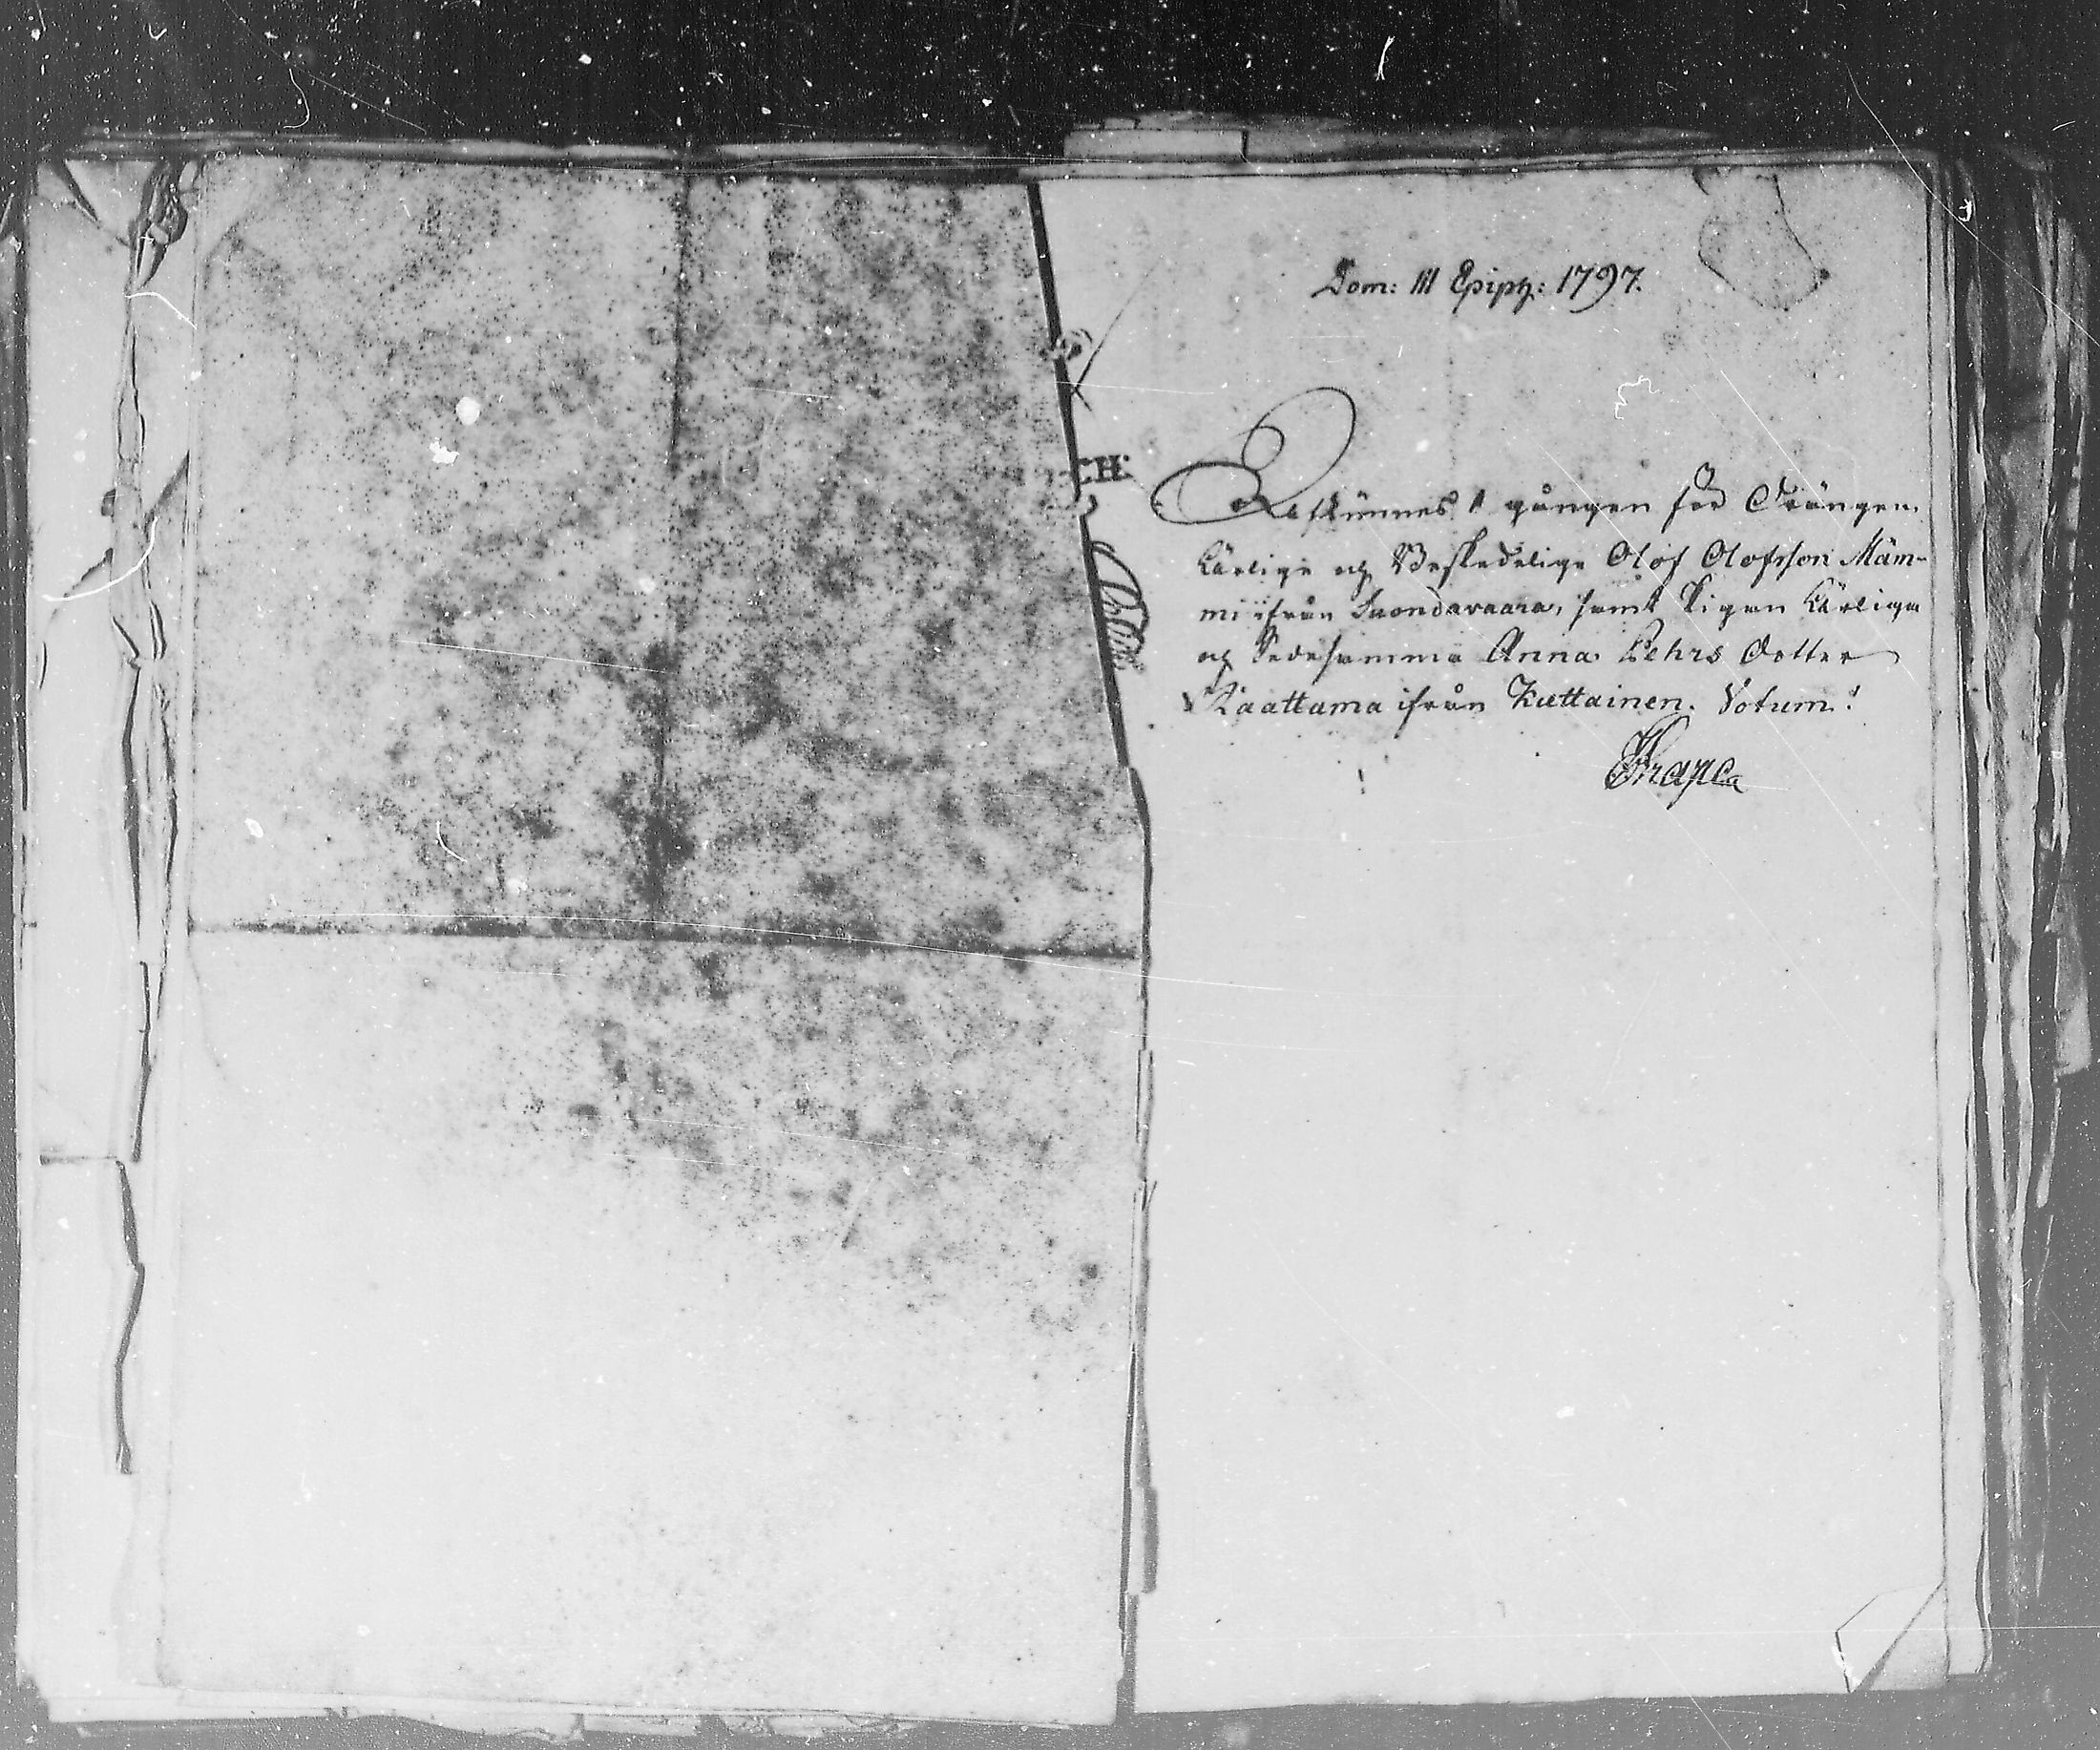 Dom: III Epiph: 1797.
CH:
Afkunnes 1 gången för Drängen
Ährlige och Beskedelige Olof Olofsson Mäm-
mi ifrån Suondavaara, samt Pigan Ährliga
och Sedesamma Anna Pehrs Dotter
Raattama ifrån Kuttainen. Votum!